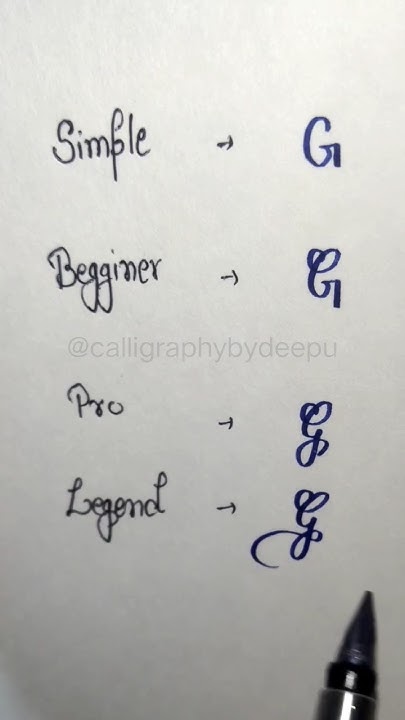 Simple → G
Begginer → G
@calligraphybydeepu
Pro → G
Legend → G